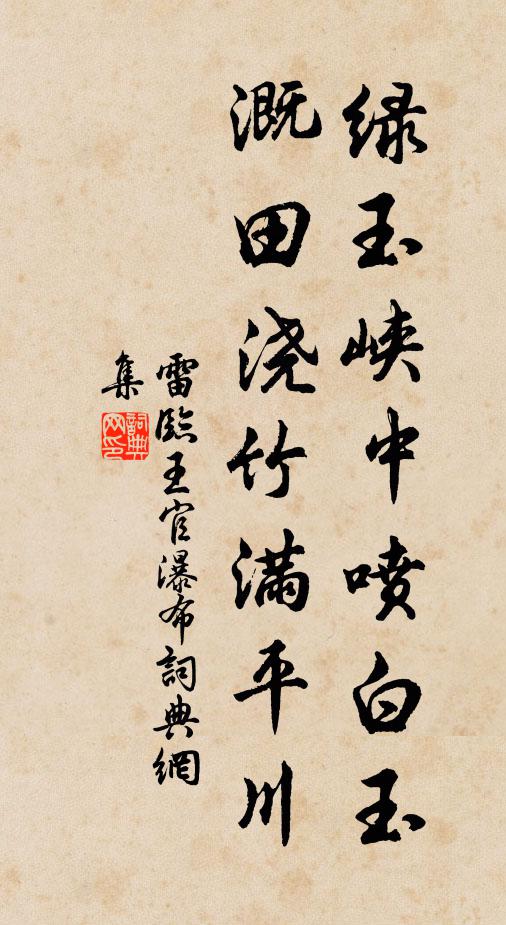 绿玉峡中喷白玉
溉田浇竹满平川
雷臨王官瀑布詞典網
集
詞典
网印